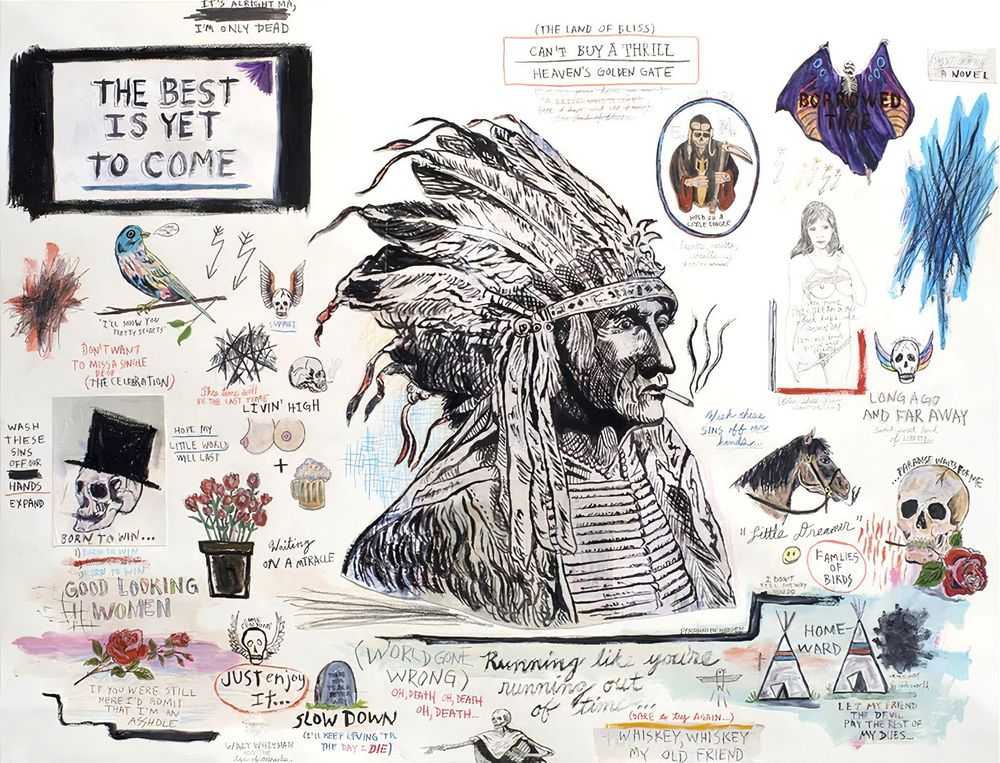 IT'S ALRIGHT MA,
I'M ONLY DEAD
THE BEST
IS YET
TO COME
(THE LAND OF BLISS)
CAN'T BUY A THRILL
HEAVEN'S GOLDEN GATE
BORROWED
TIME
A NOVEL
HOLD ON A
LITTLE LONGER
"I'LL SHOW YOU
PRETTY SECRETS"
DON'T WANT
TO MISS A SINGLE
(THE CELEBRATION)
This time will
BE THE LAST TIME
LIVIN' HIGH
HOPE MY
LITTLE WORLD
WILL LAST
+
WASH
THESE
SINS
OFF OUR
HANDS
EXPAND
BORN TO WIN...
1) BORN TO WIN
BORN TO WIN
GOOD LOOKING
WOMEN
Waiting
ON A MIRACLE
Wash these
SINS off our
hands...
LONG AGO
AND FAR AWAY
PARADISE WAITS FOR ME
"Little Dreamer"
FAMLIES
OF
BIRDS
I DON'T
HOME-
WARD
LET MY FRIEND
THE DEVIL
PAY THE REST OF
MY DUES...
IF YOU WERE STILL
HERE I'D ADMIT
THAT I'M AN
ASSHOLE
JUST enjoy
IT...
SLOW DOWN
(I'LL KEEP LOVING 'TIL
THE DAY I DIE)
WALT WHITMAN
(WORLD GONE
WRONG)
OH, DEATH OH, DEATH
OH, DEATH...
Running like you're
running out
of time...
(DARE to try AGAIN...)
WHISKEY, WHISKEY
MY OLD FRIEND